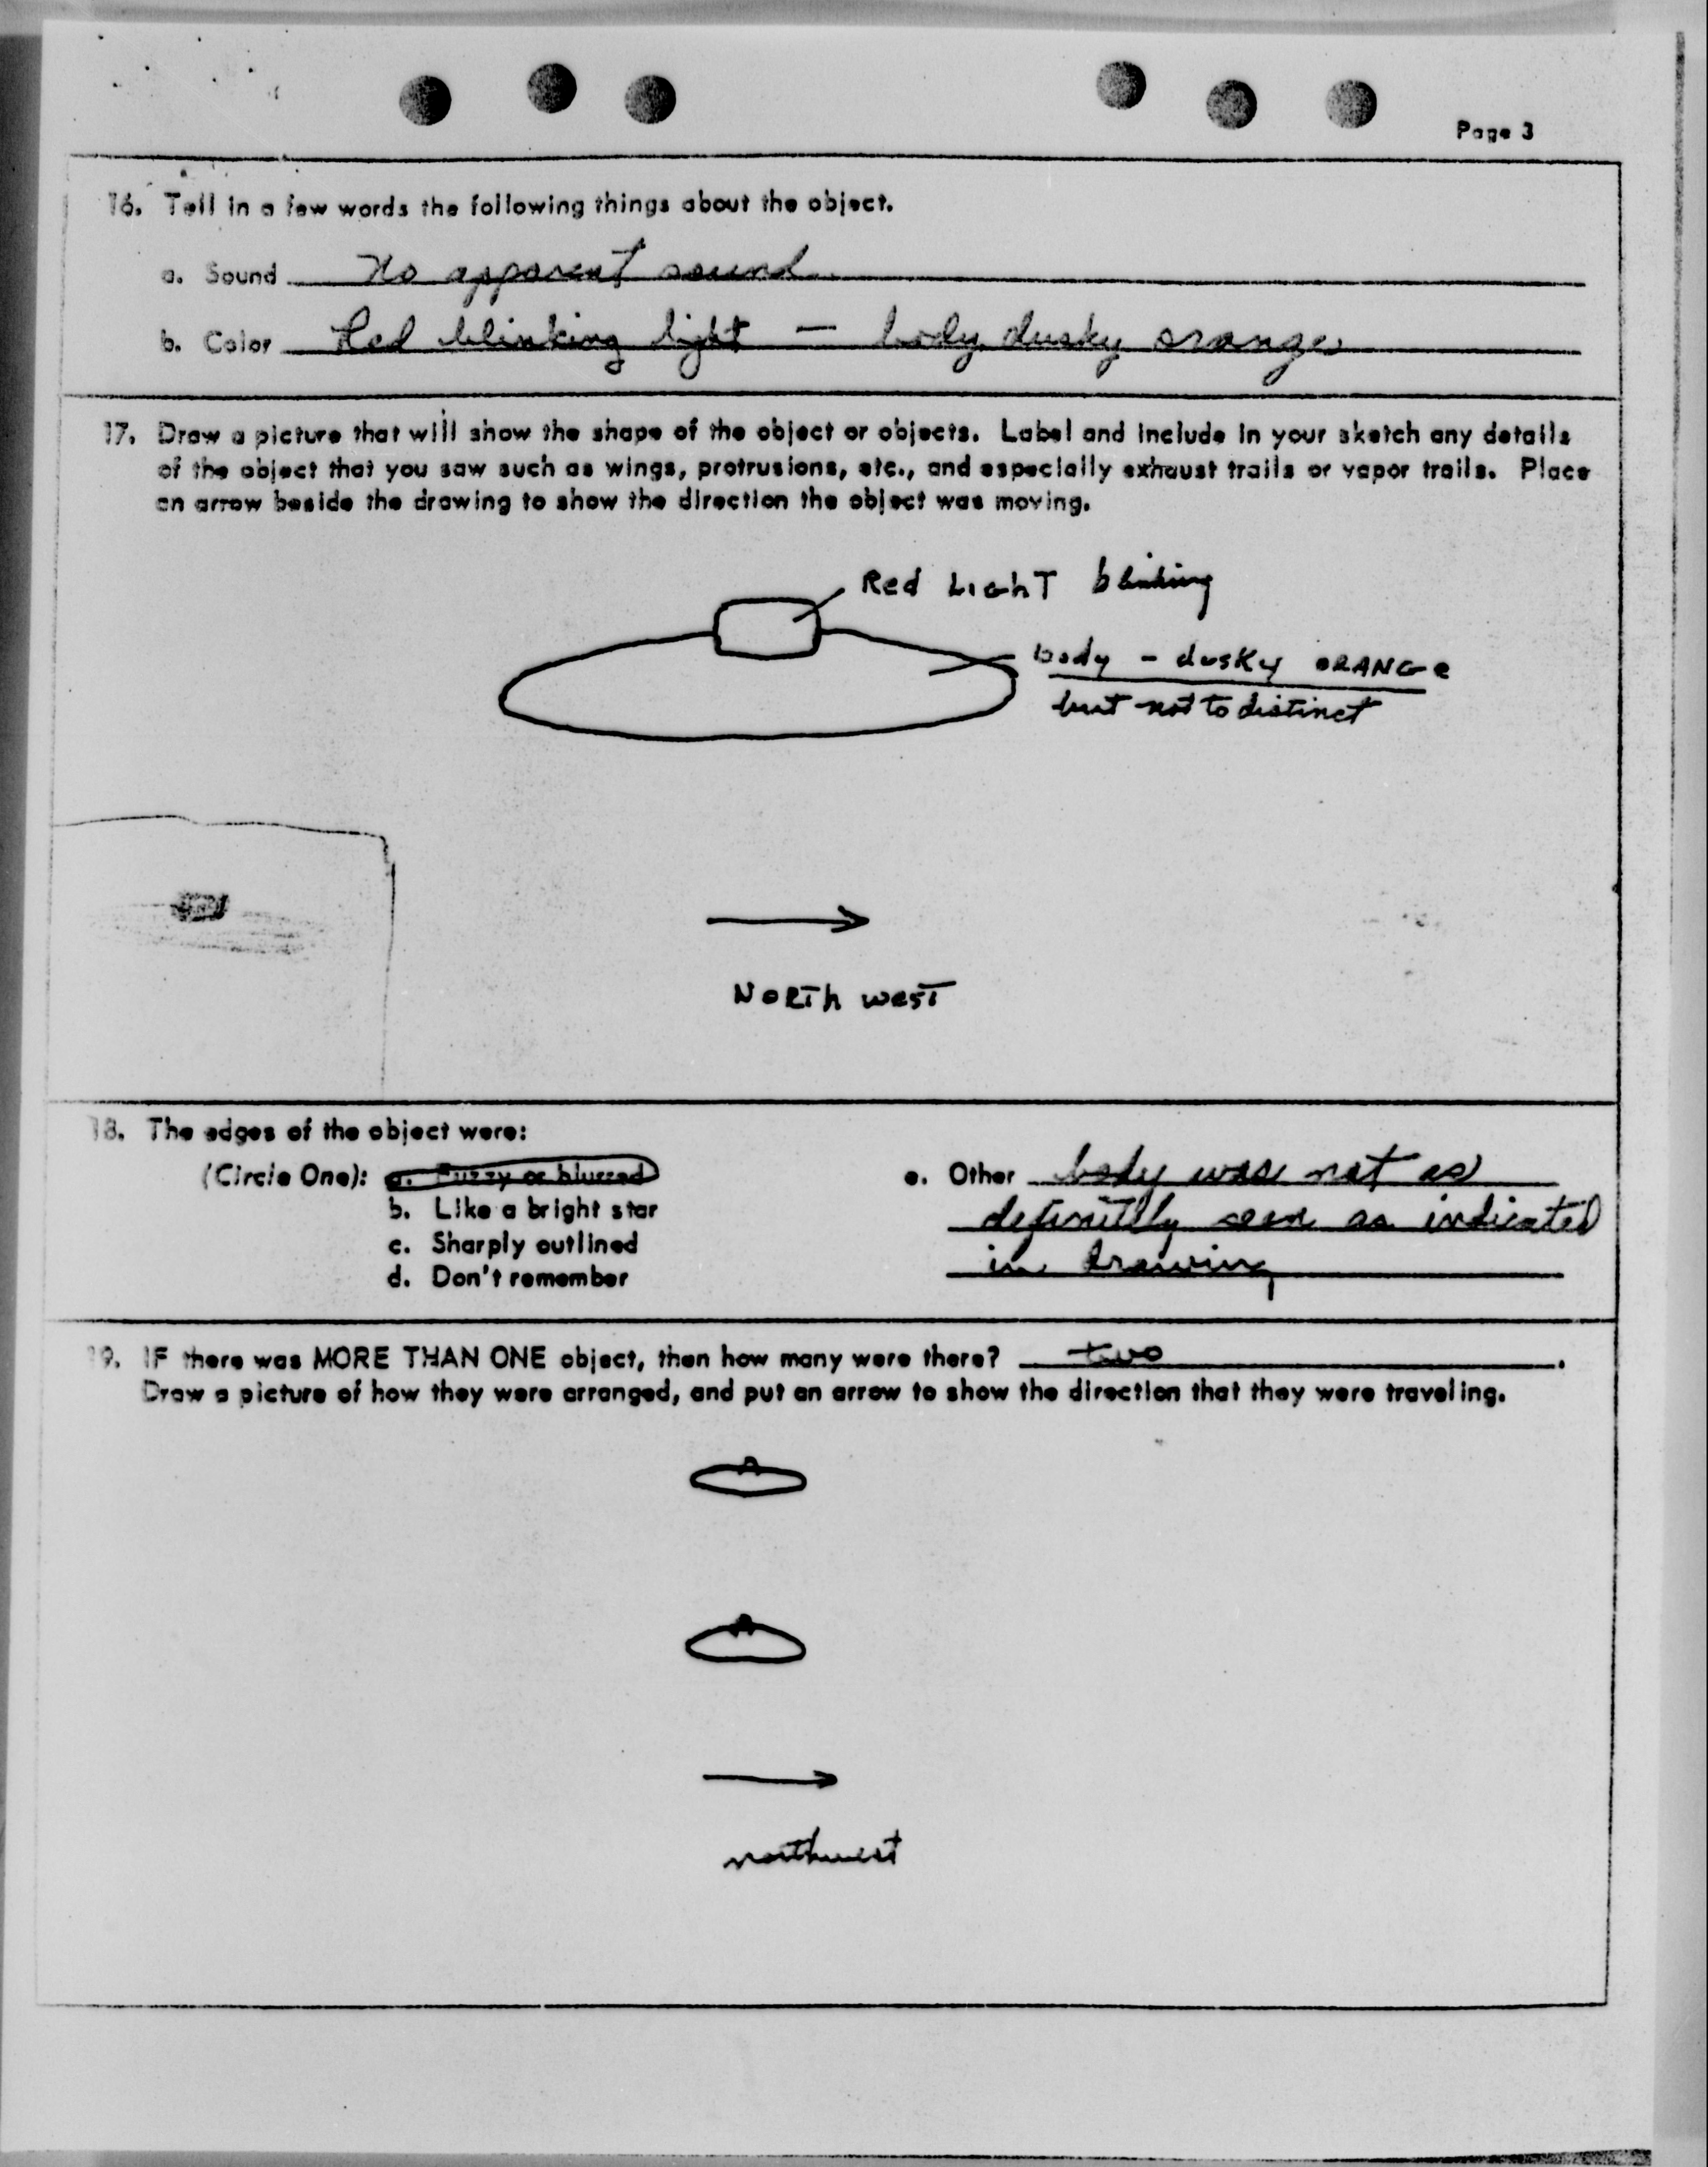 Page 3
16. Tell in a few words the following things about the object.
a. Sound No apparent sound.
b. Color Red blinking light — body dusky orange
17. Draw a picture that will show the shape of the object or objects. Label and include in your sketch any details
of the object that you saw such as wings, protrusions, etc., and especially exhaust trails or vapor trails. Place
an arrow beside the drawing to show the direction the object was moving.
Red LighT blinking
body - dusky ORANGe
but not to distinct
NoRTh west
18. The edges of the object were:
(Circle One): a. Fuzzy or blurred
b. Like a bright star
c. Sharply outlined
d. Don't remember
e. Other body was not as
definitlly seen as indicated
in drawing
19. IF there was MORE THAN ONE object, then how many were there? two.
Draw a picture of how they were arranged, and put an arrow to show the direction that they were traveling.
northwest